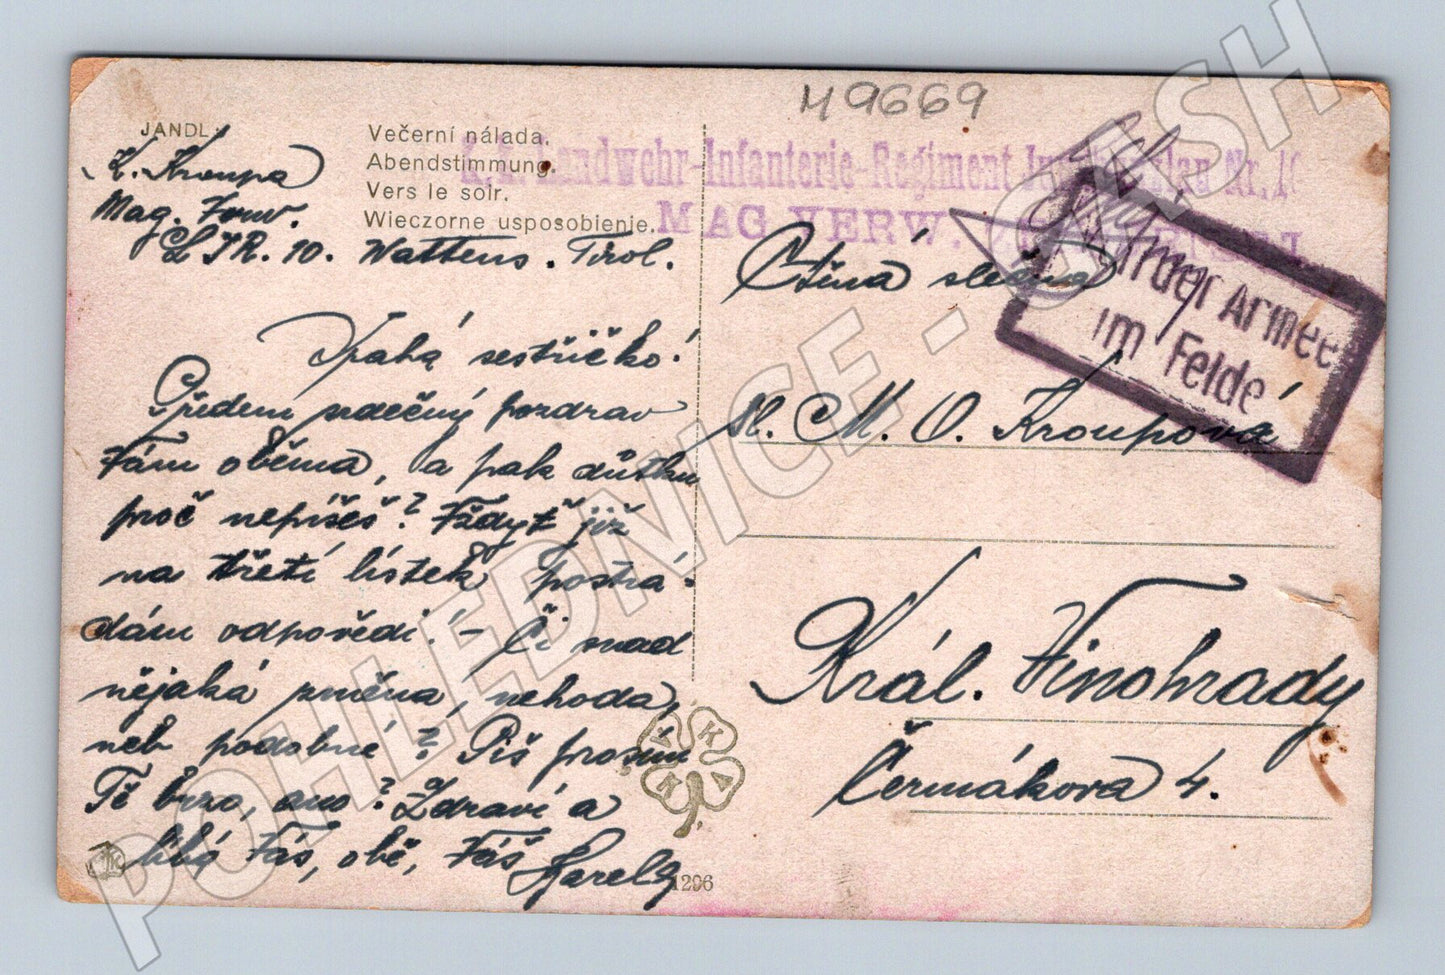 49669
JANDL.
Večerní nálada.
Abendstimmung.
Vers le soir.
Wieczorne usposobienie.
K. K. Landwehr-Infanterie-Regiment Nr. 10
MAG. VERW.
K. Kroupa
Mag. Forw.
LIR. 10. Wattens. Tirol.
Drahá sestřičko!
Předem srdečný pozdrav
Vám oběma, a pak důtku
proč nepíšeš? Vždyť již
na třetí lístek postrá-
dám odpovědi! - Či snad
nějaká změna, nehoda,
neb podobné? Piš prosím
Tě brzo, ano? Zdraví a
líbá Vás, obě, Váš Karel
1296
Ctěná slečna
Sl. M. O. Kroupová
Král. Vinohrady
Čermákova 4.
der Armee
im Felde
POHLEDNICE - CASH